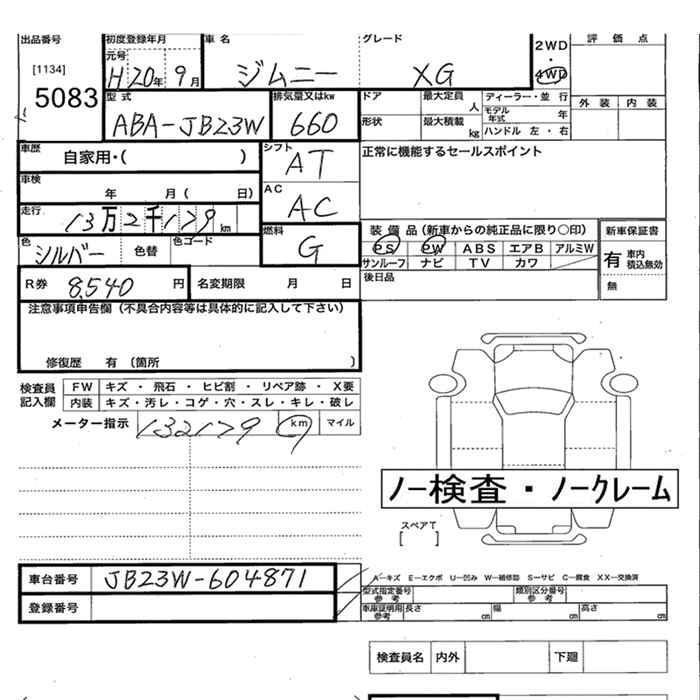 出品番号 初度登録年月 車名 グレード 評価点
[1134] 元号 2WD
5083 H20年9月 ジムニー XG ・
4WD
型式 排気量又はkw ドア 最大定員 人 ディーラー・並行 外装 内装
ABA-JB23W 660 モデル年式 年
形状 最大積載 kg ハンドル 左・右
車歴 自家用・( ) シフト AT 正常に機能するセールスポイント
車検 年 月( 日) AC AC
走行 13万2千179km 燃料 G 装備品(新車からの純正品に限り○印) 新車保証書
色 シルバー 色替 色コード PS PW ABS エアB アルミW 有 車内積込無効
サンルーフ ナビ TV カワ 無
R券 8,540円 名変期限 月 日 後日品
注意事項申告欄(不具合内容等は具体的に記入して下さい)
修復歴 有(箇所 )
検査員記入欄 FW キズ・飛石・ヒビ割・リペア跡・X要
内装 キズ・汚レ・コゲ・穴・スレ・キレ・破レ
メーター指示 132179 km マイル
ノー検査・ノークレーム
スペアT
[ ]
車台番号 JB23W-604871
登録番号
A—キズ E—エクボ U—凹み W—補修跡 S—サビ C—腐食 XX—交換済
型式指定番号 参考 類別区分番号 参考
車庫証明用 参考 長さ cm 幅 cm 高さ cm
検査員名 内外 下廻